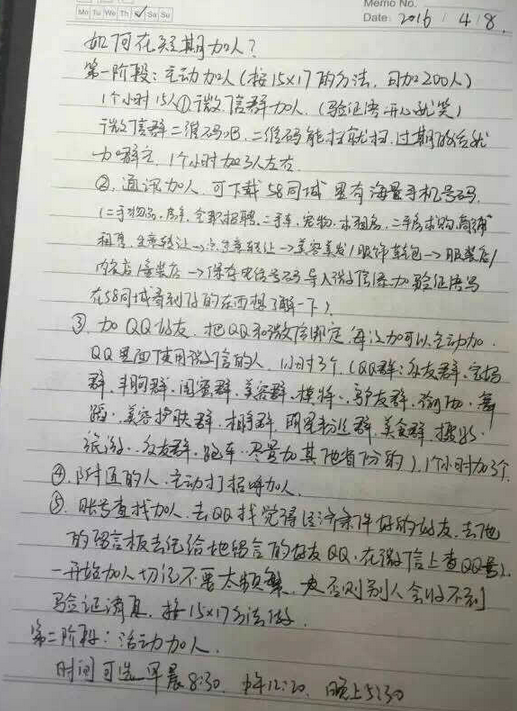 Memo No.
Mo Tu We Th Fr Sa Su
Date: 2016 / 4 / 8.
如何在短期加人?
第一阶段: 主动加人 (按15×17的方法, 可加200人)
1个小时15人 ① 微信群加人. (验证语开心就笑)
微信群二维码, 二维码能扫就扫, 过期的给就
加群主, 1个小时加3人左右.
②, 通讯加人. 可下载58同城 里有海量手机号码.
(二手物品, 房产, 全职招聘, 二手车, 宠物, 求租房, 二手房求购, 商铺
租售, 生意转让→点生意转让→美容美发/服饰鞋包→服装店/
内衣店/童装店→保存电话号码导入微信添加验证语写
在58同城看到你的东西想了解一下).
③. 加QQ好友, 把QQ和微信绑定, 每次加可以主动加.
QQ里面使用微信的人. 1小时3个. (QQ群: 女友群, 宝妈
群. 丰胸群. 闺蜜群. 美容群. 模特. 驴友群. 瑜伽. 舞
蹈. 美容护肤群. 相亲群. 美食群.
女友群. 跑车. 尽量加其他省份的). 1个小时加3个.
④. 附近的人. 主动打招呼加人.
⑤. 账号查找加人. 去QQ找觉得经济条件好的好友. 去他
的留言板去记给他留言的好友QQ. 在微信上查QQ号.
一开始加人切记不要太频繁. 否则别人会收不到
验证消息. 按15×17方法做.
第二阶段: 活动加人.
时间可选 早晨8:30. 中午12:20. 晚上5:30